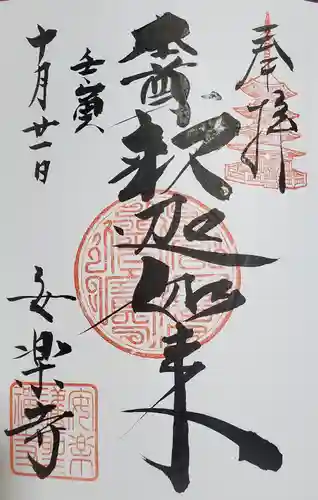 奉拝
釈迦如来
壬寅
十月廿一日
安楽寺